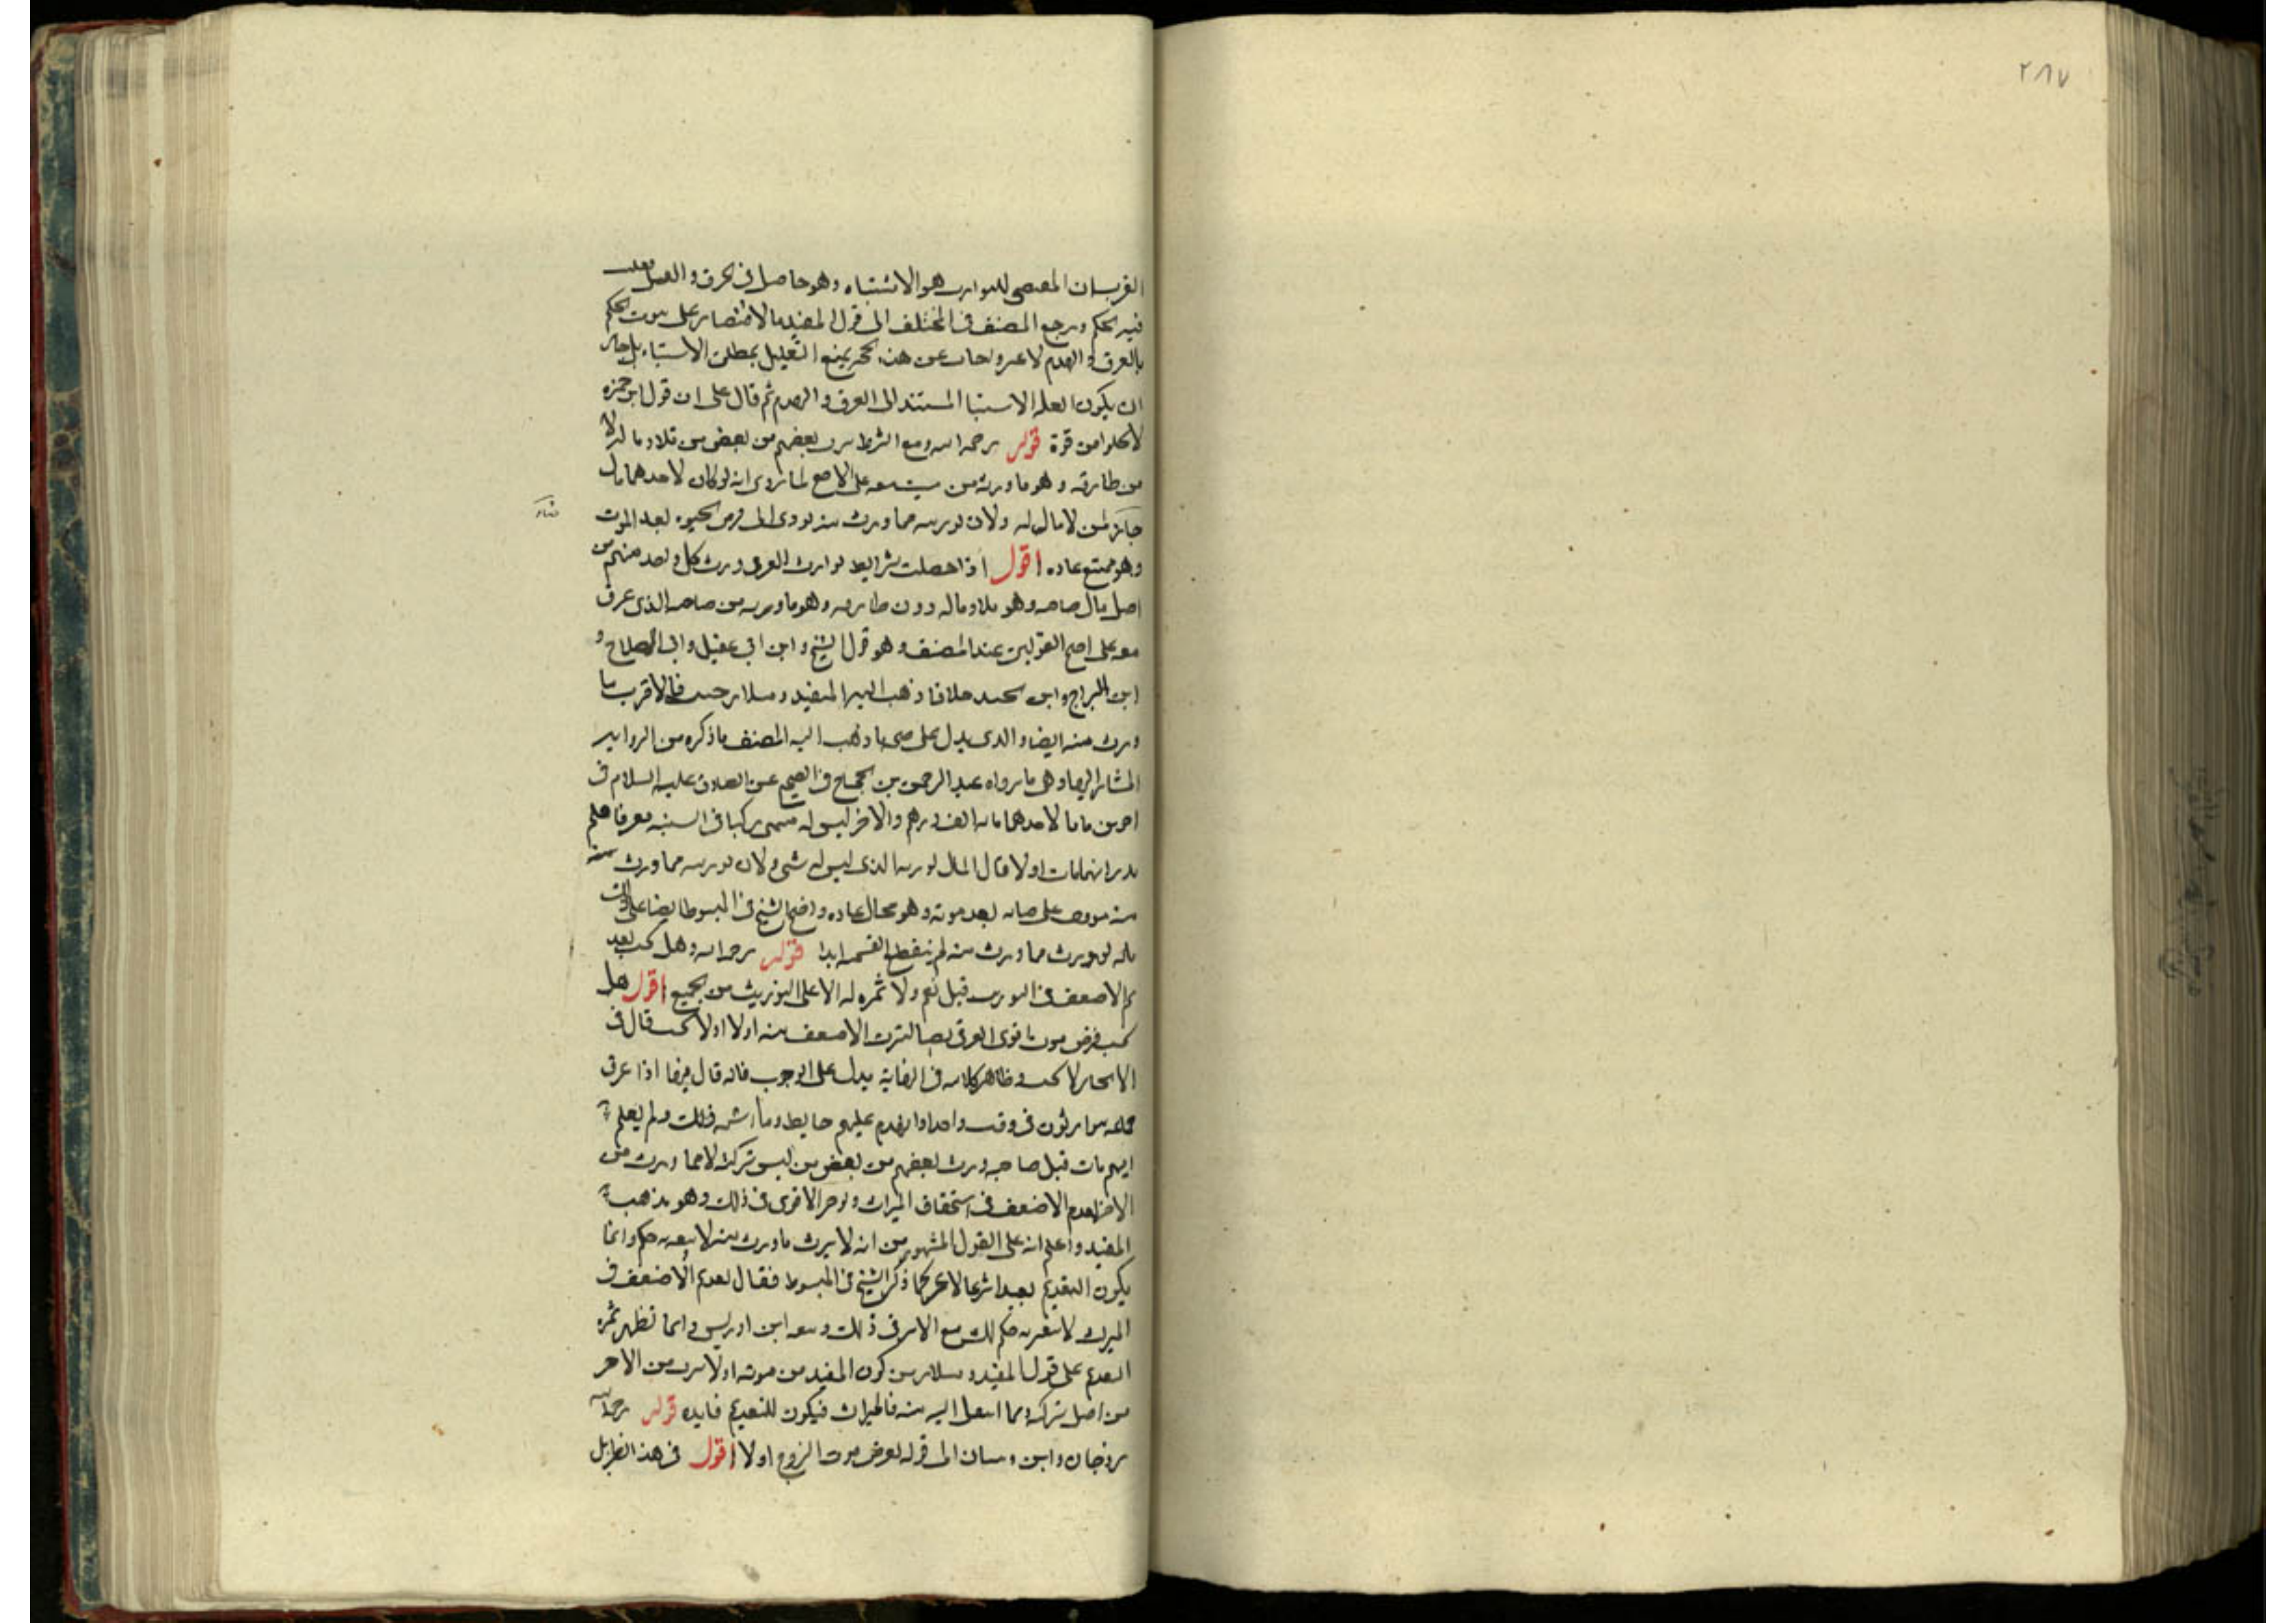 ٢٨٧
القرب ان المقتضى للتوارث هو الاشتباه وهو حاصل فى الحرق والقتل
فيه الحكم ورجح المصنف فى المختلف الى قول المفيد بالاقتصار على ثبوت الحكم
بالغرق والهدم لا غير واجاب عن هذه الحجة بمنع التعليل بمطلق الاشتباه بل جاز
ان يكون العله الاشتباه المستند الى الغرق والهدم ثم قال على ان قول ابن حمزه
لا يخلوا من قوة قوله رحمه الله ومع الشرط يرث بعضهم من بعض من تلاد ماله لا
من طارفه وهو ما ورثه من ميت معه على الاصح لما روى انه لو كان لاحدهما مال
جاز لمن لا مال له ولان توريثه مما ورث منه يودى الى فرض الحيوه بعد الموت
وهو ممتنع عاده اقول اذا حصلت شرايط توارث الغرقى ورث كل واحد منهم من
اصل مال صاحبه وهو تلاد ماله دون طارفه وهو ما ورثه من صاحبه الذى غرق
معه على اصح القولين عند المصنف وهو قول الشيخ وابن ابى عقيل وابى الصلاح و
ابن البراج وابن خلافا ذهب اليه المفيد وسلار حيث قالا يرث مما
ورث منه ايضا والذى يدل على صحة ما ذهب اليه المصنف ما ذكره من الرواية
المشار اليها وهى ما رواه عبد الرحمن بن الحجاج فى الصحيح عن الصادق عليه السلام فى
اخوين ماتا لاحدهما مائة الف درهم والاخر ليس له شىء ركبا فى السفينه فغرقا فلم
يدر ايهما مات اولا قال المال لورثة الذى ليس له شىء ولان توريثه مما ورث منه
منه موقوف على حياته بعد موته وهو محال عاده واحتج الشيخ فى المبسوط ايضا على ذلك
بانه لو ورث مما ورث منه لم ينقطع القسمه ابدا قوله رحمه الله وهل يجب تقديم
الاضعف فى التوريث قيل نعم ولا ثمره له الا على التوريث من الجميع اقول هل
يجب فرض موت اقوى الغرقى نصيبا ليرث الاضعف منه اولا او لا يجب قال فى
الايجاز لا يجب وظاهر كلامه فى النهاية يدل على الوجوب فانه قال فيها اذا غرق
جماعه يتوارثون فى وقت واحد او انهدم عليهم حايط وما اشبه ذلك ولم يعلم
ايهم مات قبل صاحبه ورث بعضهم من بعض من نفس تركته لا مما ورث من
الاخر يقدم الاضعف فى استحقاق الميراث ويوخر الاقوى فى ذلك وهو مذهب
المفيد واعلم انه على القول المشهور من انه لا يرث ما ورث منه لا يتغير به حكم وانما
يكون التقديم تعبدا شرعيا لا غير كما ذكر الشيخ فى المبسوط فقال تقديم الاضعف فى
الميراث لا يتغير به حكم لكن نتبع الاثر فى ذلك وتبعه ابن ادريس وانما تظهر ثمره
التقديم على قول المفيد وسلار من كون المفيد من موته اولا يرث من الاخر
من اصل تركته مما انتقل اليه منه فالميراث فيكون للتقديم فايده قوله رحمه الله
زوجان وابن وبنتان الى قوله يفرض موت الزوج اولا اقول فى هذا المثال